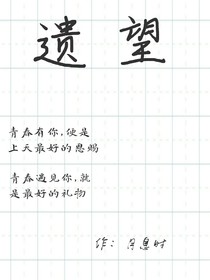 遗望
青春有你,便是
上天最好的恩赐
青春遇见你,就
是最好的礼物
作：息时